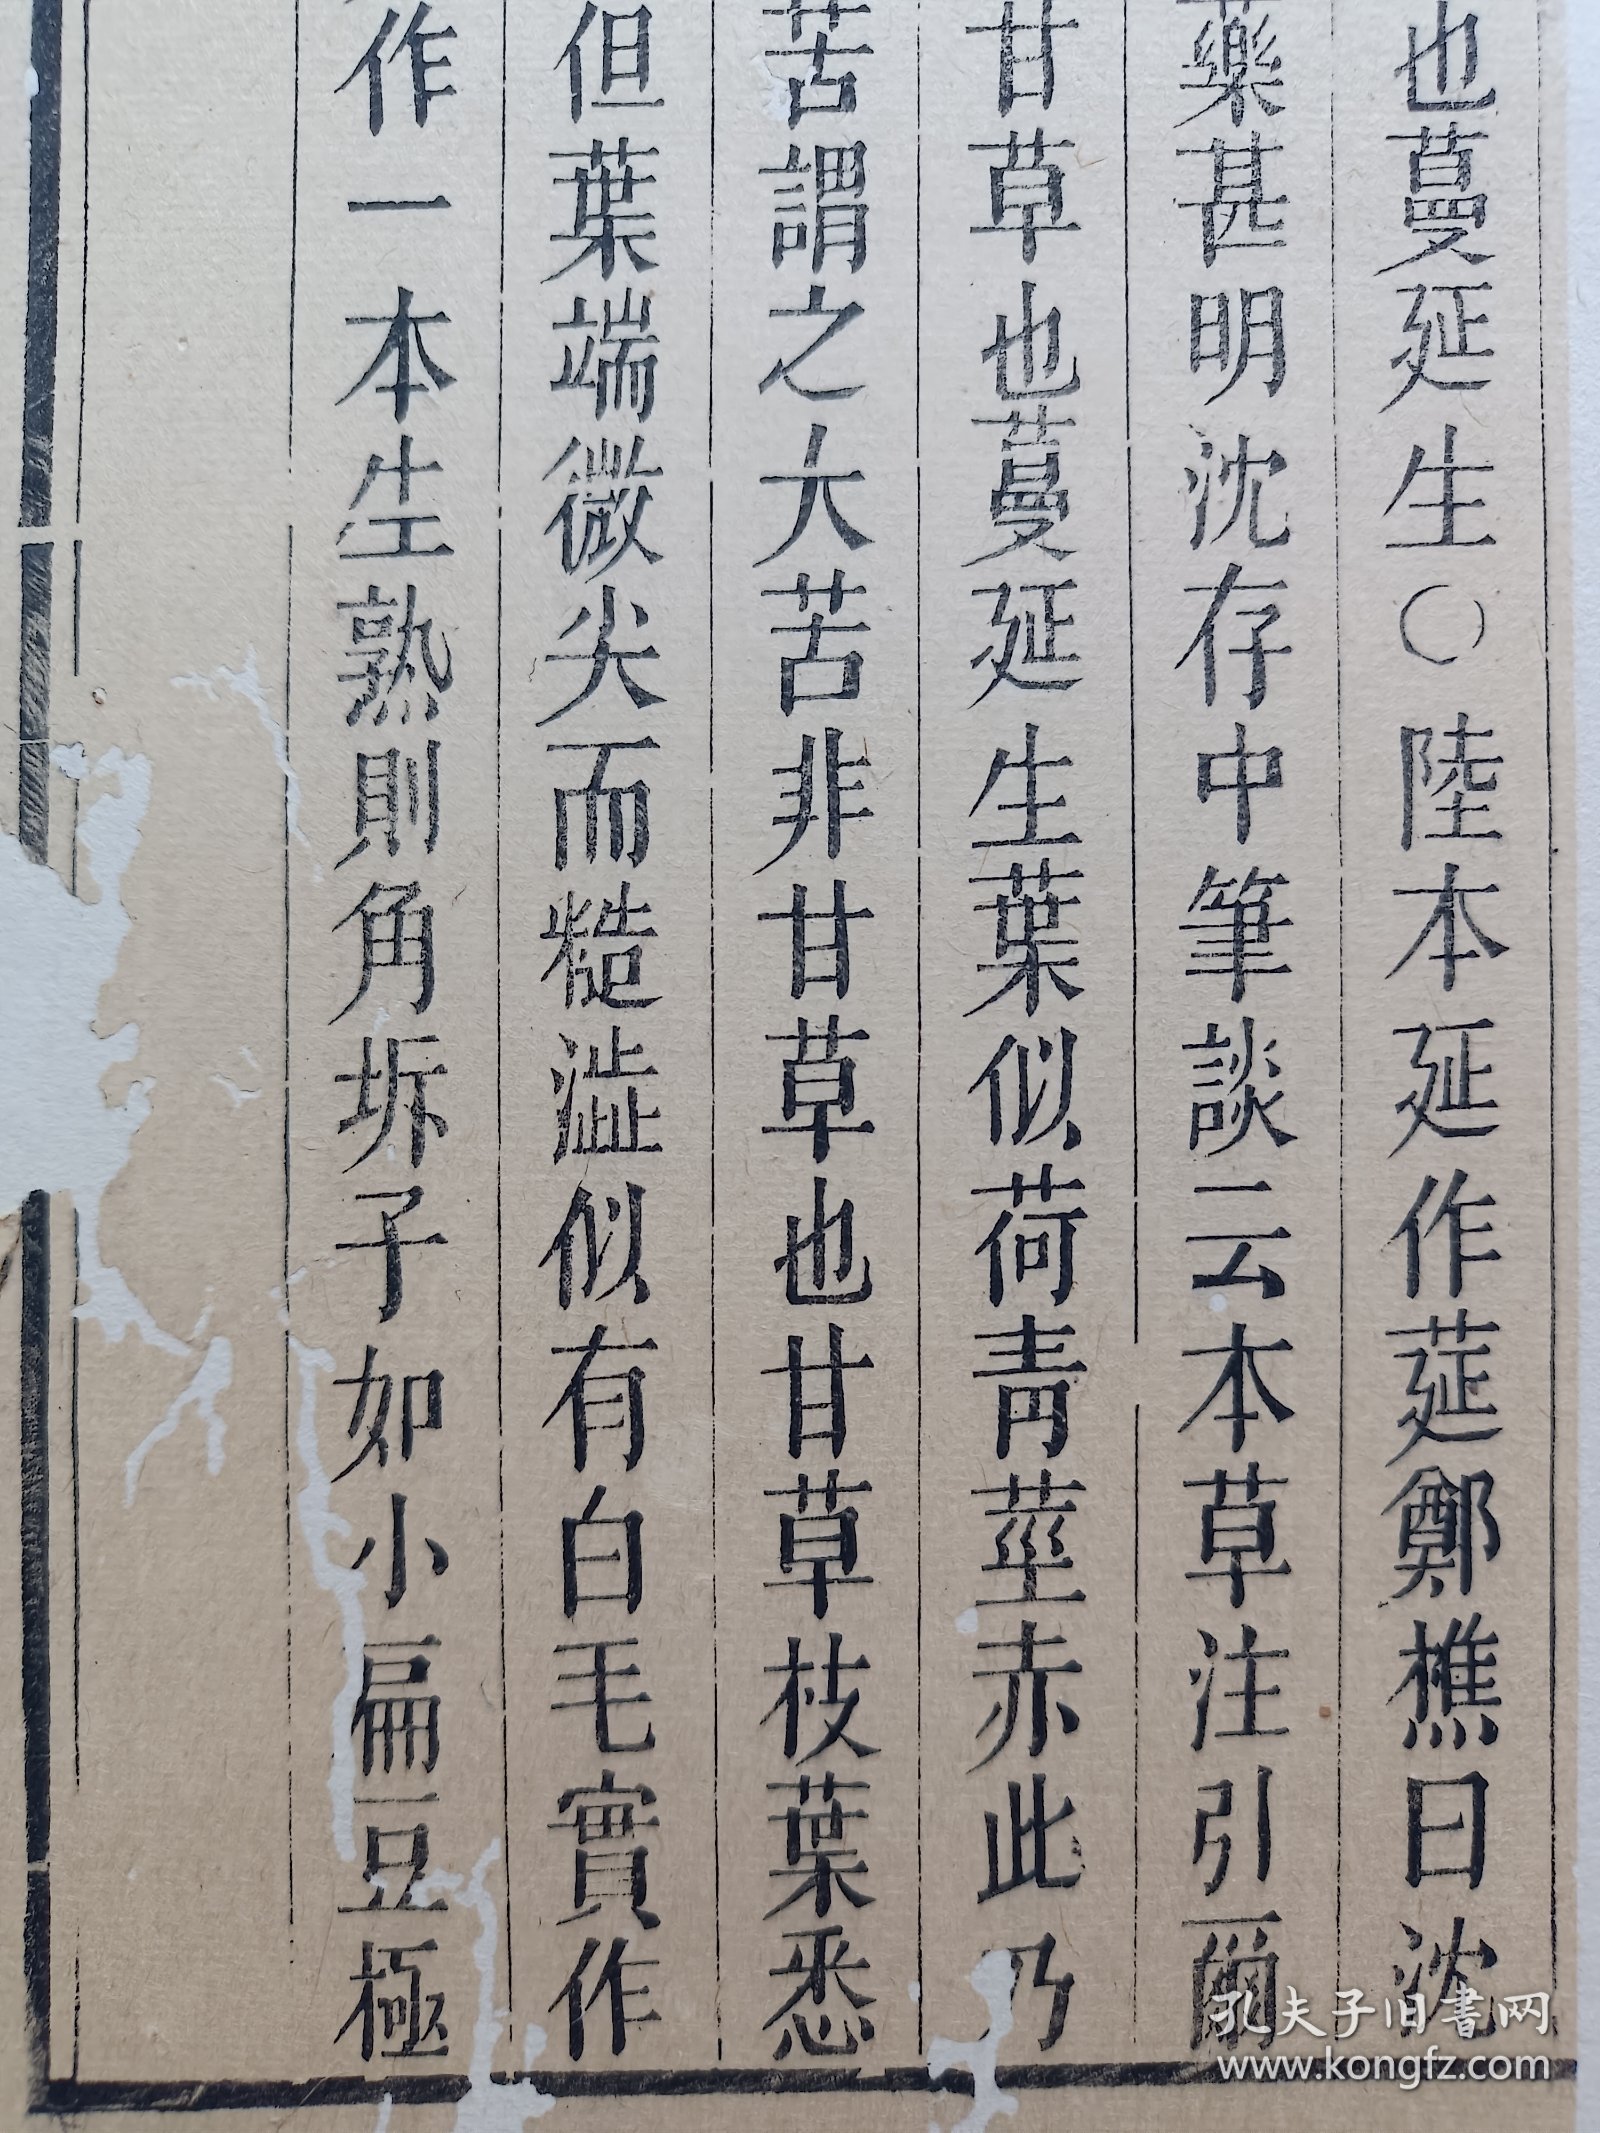 也蔓延生○陸本延作莚鄭樵曰沈
藥甚明沈存中筆談云本草注引爾
甘草也蔓延生葉似荷青莖赤此乃
苦謂之大苦非甘草也甘草枝葉悉
但葉端微尖而糙澁似有白毛實作
作一本生熟則角坼子如小扁豆極
孔夫子旧书网
www.kongfz.com